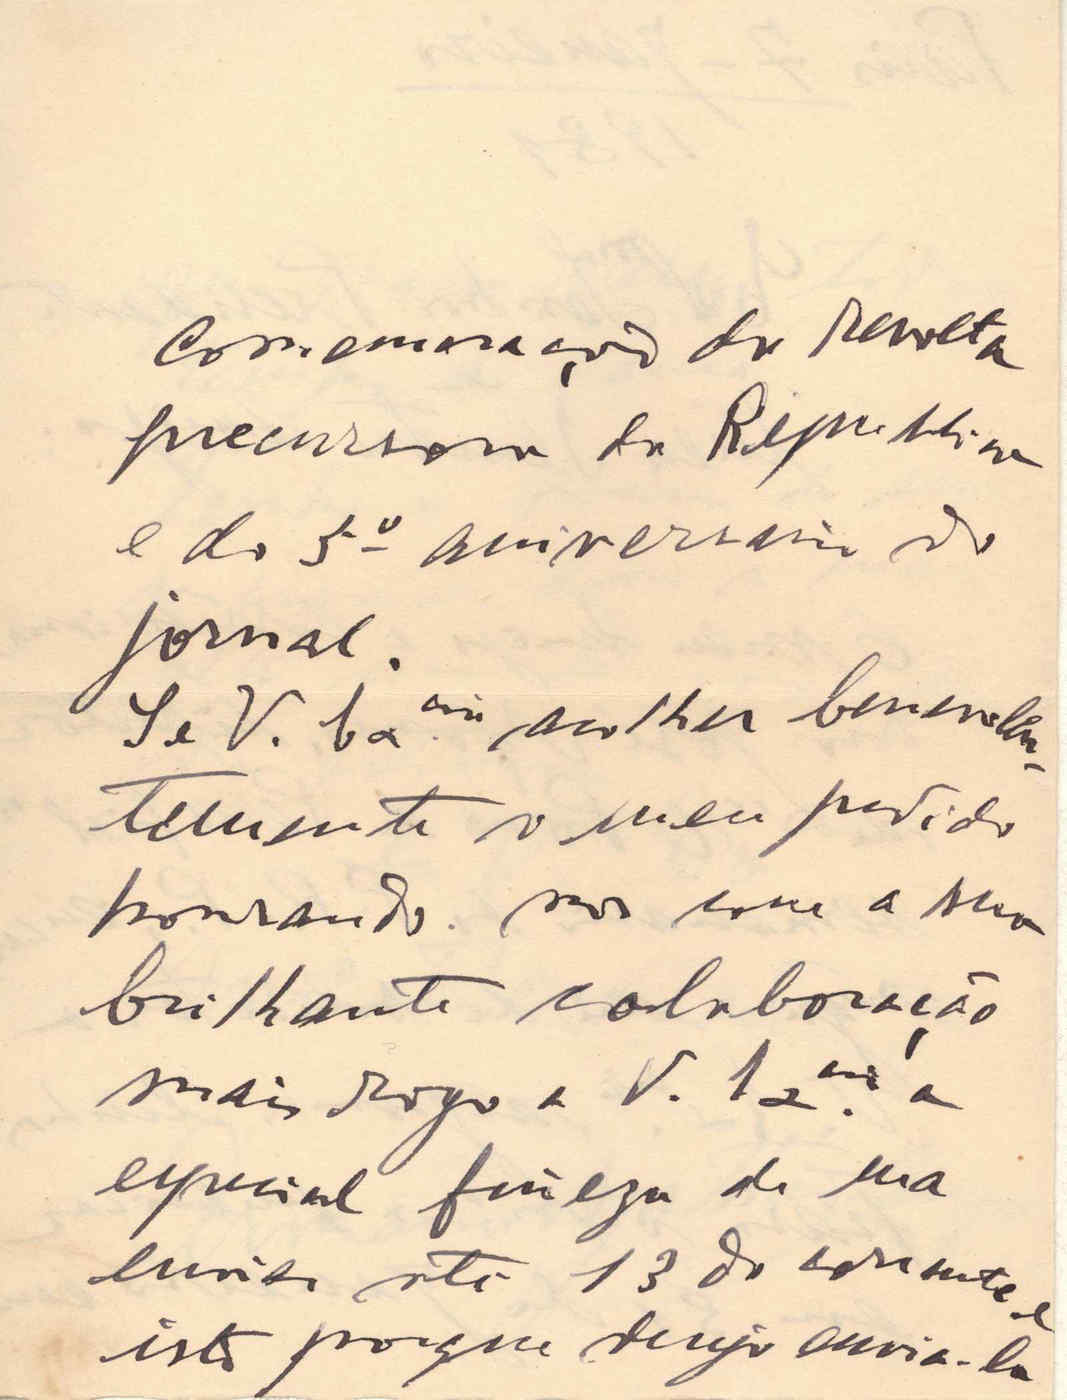 comemoração da Revolta
precursora da Republica
e do 5º aniversario do
jornal.
Se V. Exᵃ acolher benevolen-
temente o meu pedido
honrando-nos com a sua
brilhante colaboração
mais rogo a V. Exᵃ a
especial fineza de ma
enviar até 13 do corrente e
isto porque desejo envia-la